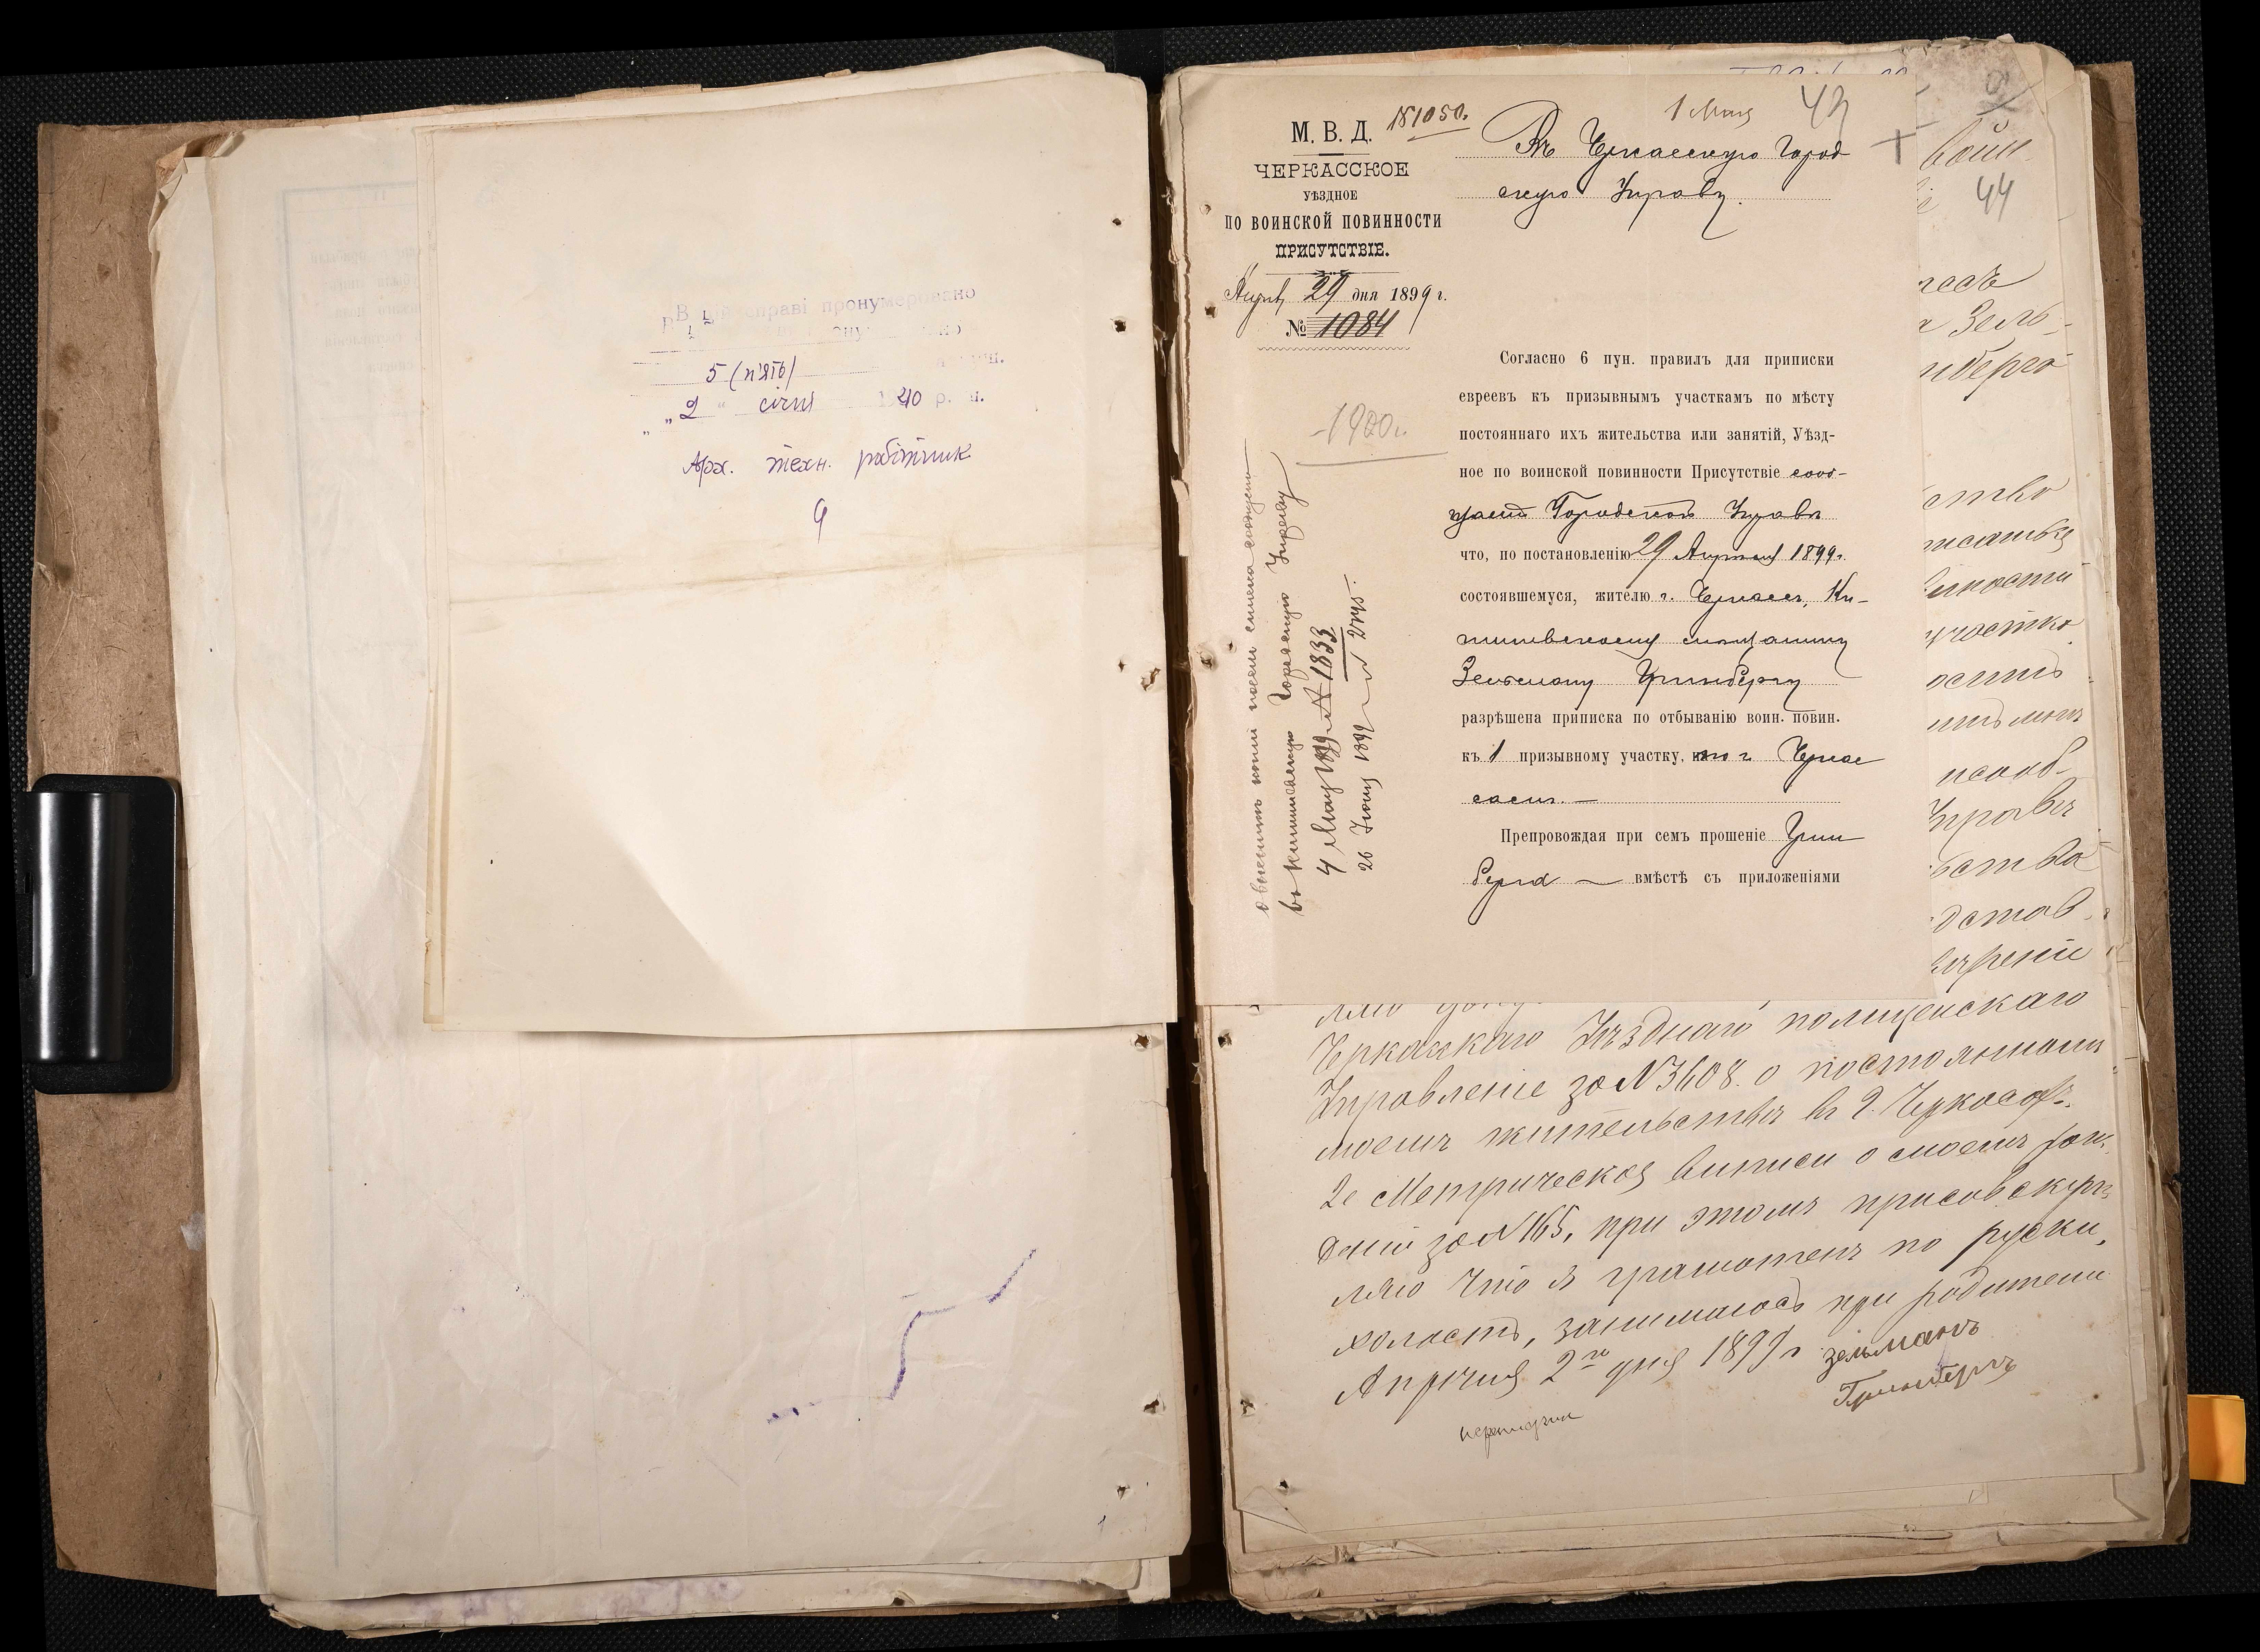 В цій справі пронумеровано
5 (п'ять)
„2“ січня 1940 р.
Арх. техн. робітник
1 Мая
43
М. В. Д.
181050.
ЧЕРКАССКОЕ
УѢЗДНОЕ
ПО ВОИНСКОЙ ПОВИННОСТИ
ПРИСУТСТВІЕ.
29 дня 1899 г.
№ 1084
1900 г.
Въ Черкасскую Город
скую Управу.
Согласно 6 пун. правилъ для приписки
евреевъ къ призывнымъ участкамъ по мѣсту
постояннаго ихъ жительства или занятій, Уѣзд-
ное по воинской повинности Присутствіе сооб-
щаетъ Городской Управѣ
что, по постановленію 29 Апрѣля 1899 г.
состоявшемуся, жителю г. Черкассъ, Ки-
шиневскому мѣщанину
Зельману Гринбергу
разрѣшена приписка по отбыванію воин. повин.
къ 1 призывному участку, по г. Черкас
самъ. —
Препровождая при семъ прошеніе Грин
берга — вмѣстѣ съ приложеніями
въ Кишиневскую Городскую Управу
4 Мая 1899 г. № 1833
26 Іюня 1899 г. № 2745.
воин
44
Зель-
нберга
участко
Управѣ
дстав
Черкасскаго Уѣзднаго полицейскаго
Управленіе за № 3608. о постоянномъ
моемъ жительствѣ въ г. Черкасахъ.
2е Метрическоя виписи о моемъ рож.
деніи за № 165, при этомъ присовокуп
ляю что я грамотенъ по руски,
холостъ, занимаюсь при родители
Апрѣля 2го дня 1899 г. Зельманъ
Гринбергъ